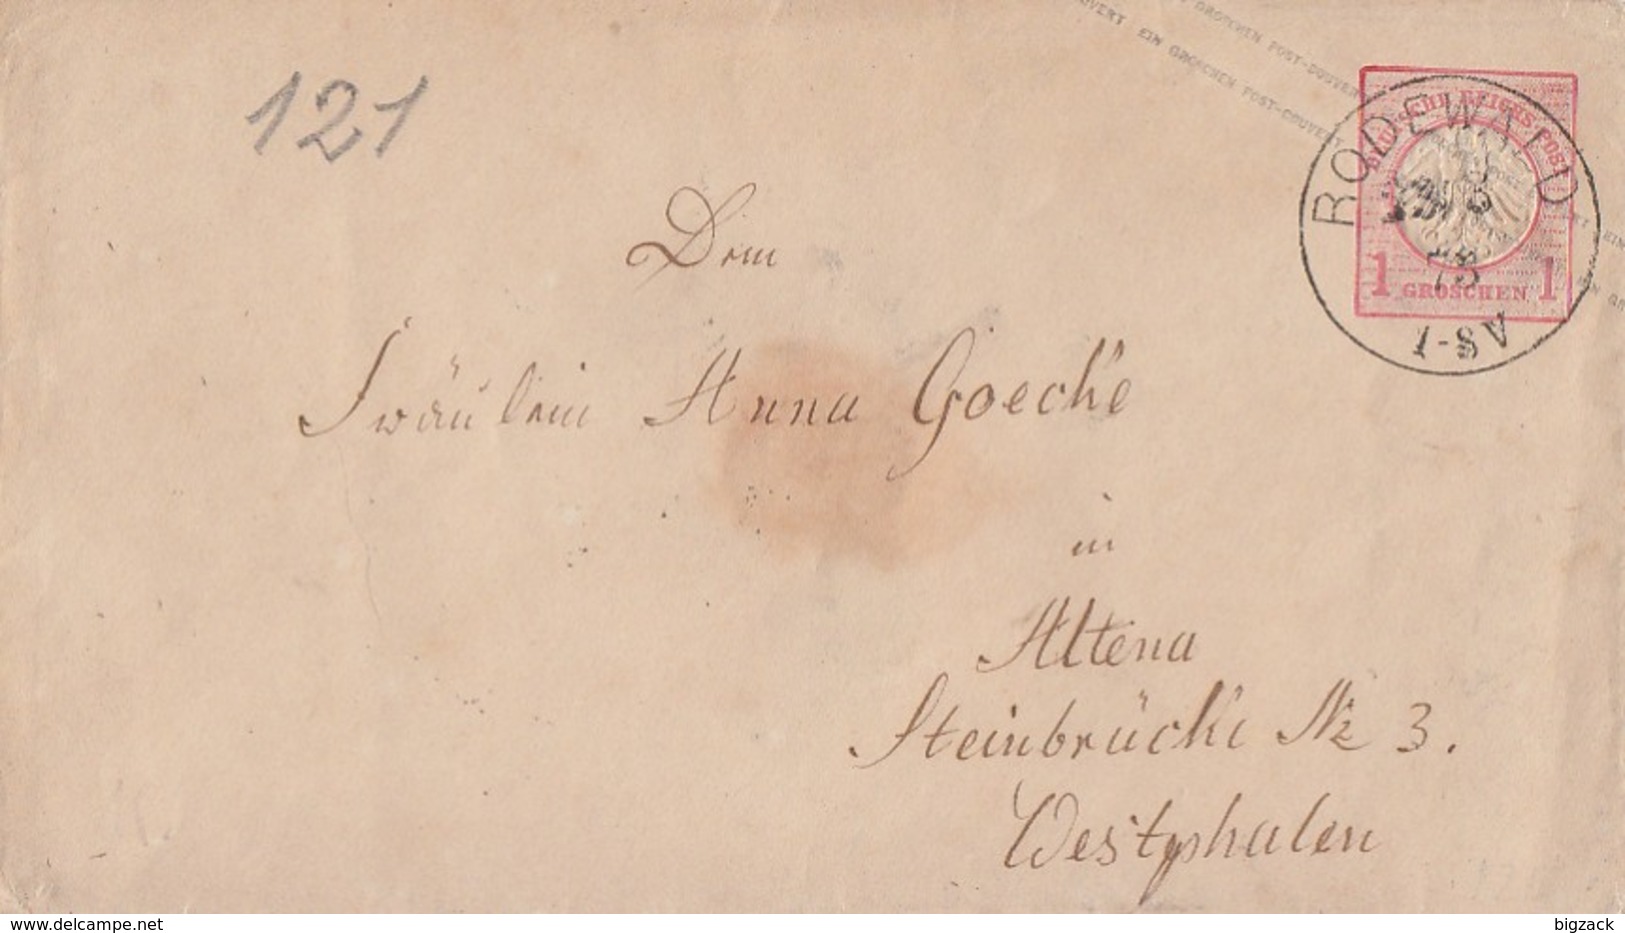 GROSCHEN POST-COUVERT
EIN GROSCHEN POST-COUVERT
121
DEUTSCHE REICHS POST
RODEWALD
1 GROSCHEN 1
A8-1
Dem
Fräulein Anna Goecke
in
Altena
Steinbrücke № 3.
Westphalen
www.delcampe.net
bigzack